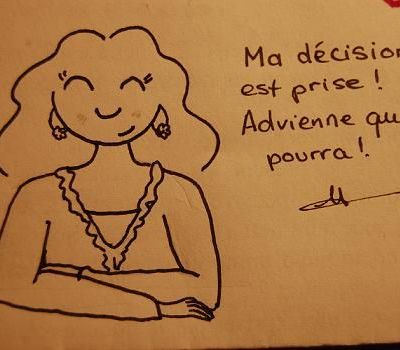 Ma décision
est prise !
Advienne que
pourra !